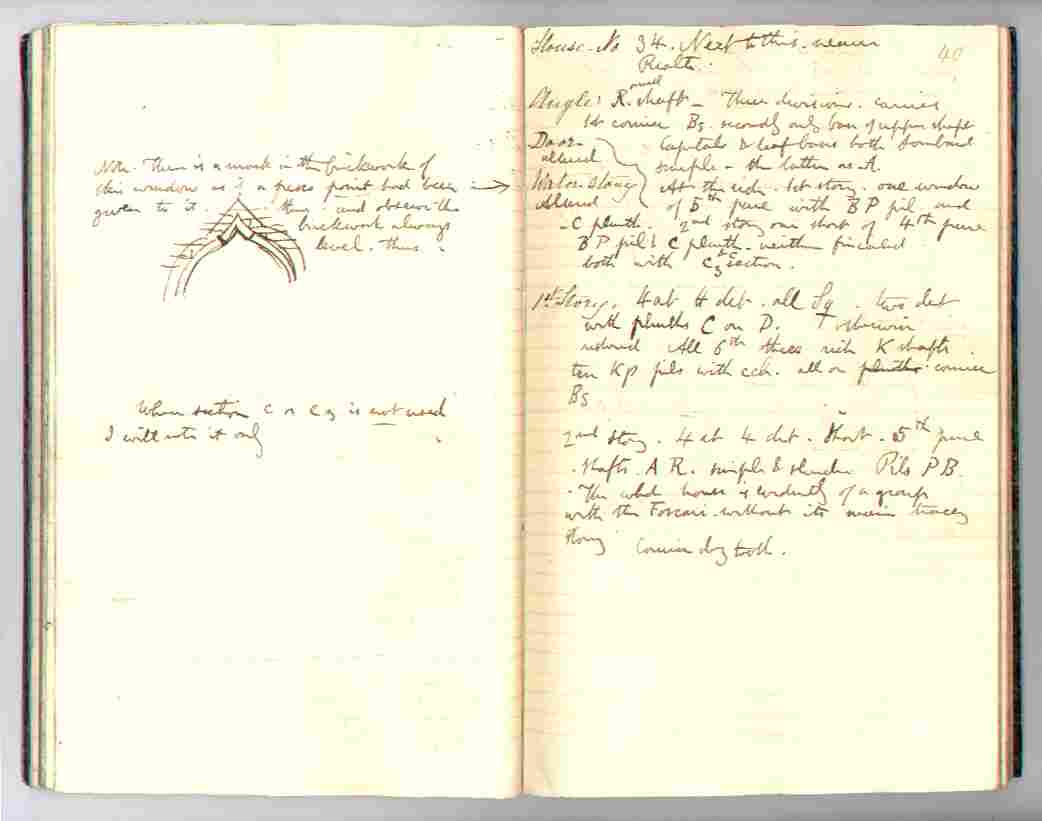 Note. There is a mark in the brickwork of
this window as if a piece point had been
given to it. thus and observe the
brickwork always
level. thus.
When section C or C 3 is not used
I will note it only
40
House. No 34. Next to this. nearer
Rialto.
small
Angle: R. shaft - Three divisions. carries
1st cornice B5. secondly only base of upper shaft
Door
altered
Capitals & leaf bases both Lombard
simple - the latter as A.
Water Story
Altered
At the side. 1st story. one window
of 5th pure with B P pil. and
C plinth. 2nd story one short of 4th pure
B P pils C plinth. neither finialed
both with C3 section.
1st Story. 4 at 4 det. all Sq. two det
with plinths C on D. otherwise
restored All 6th three rich K shafts.
ten K p pils with cch. all on plinths cornice
B5
2nd story. 4 at 4 det. short. 5th pure
shafts. A R. simple & slender Pils P B.
The whole house is evidently of a group
with the Foscari without its main tracery
story Cornice dog tooth.